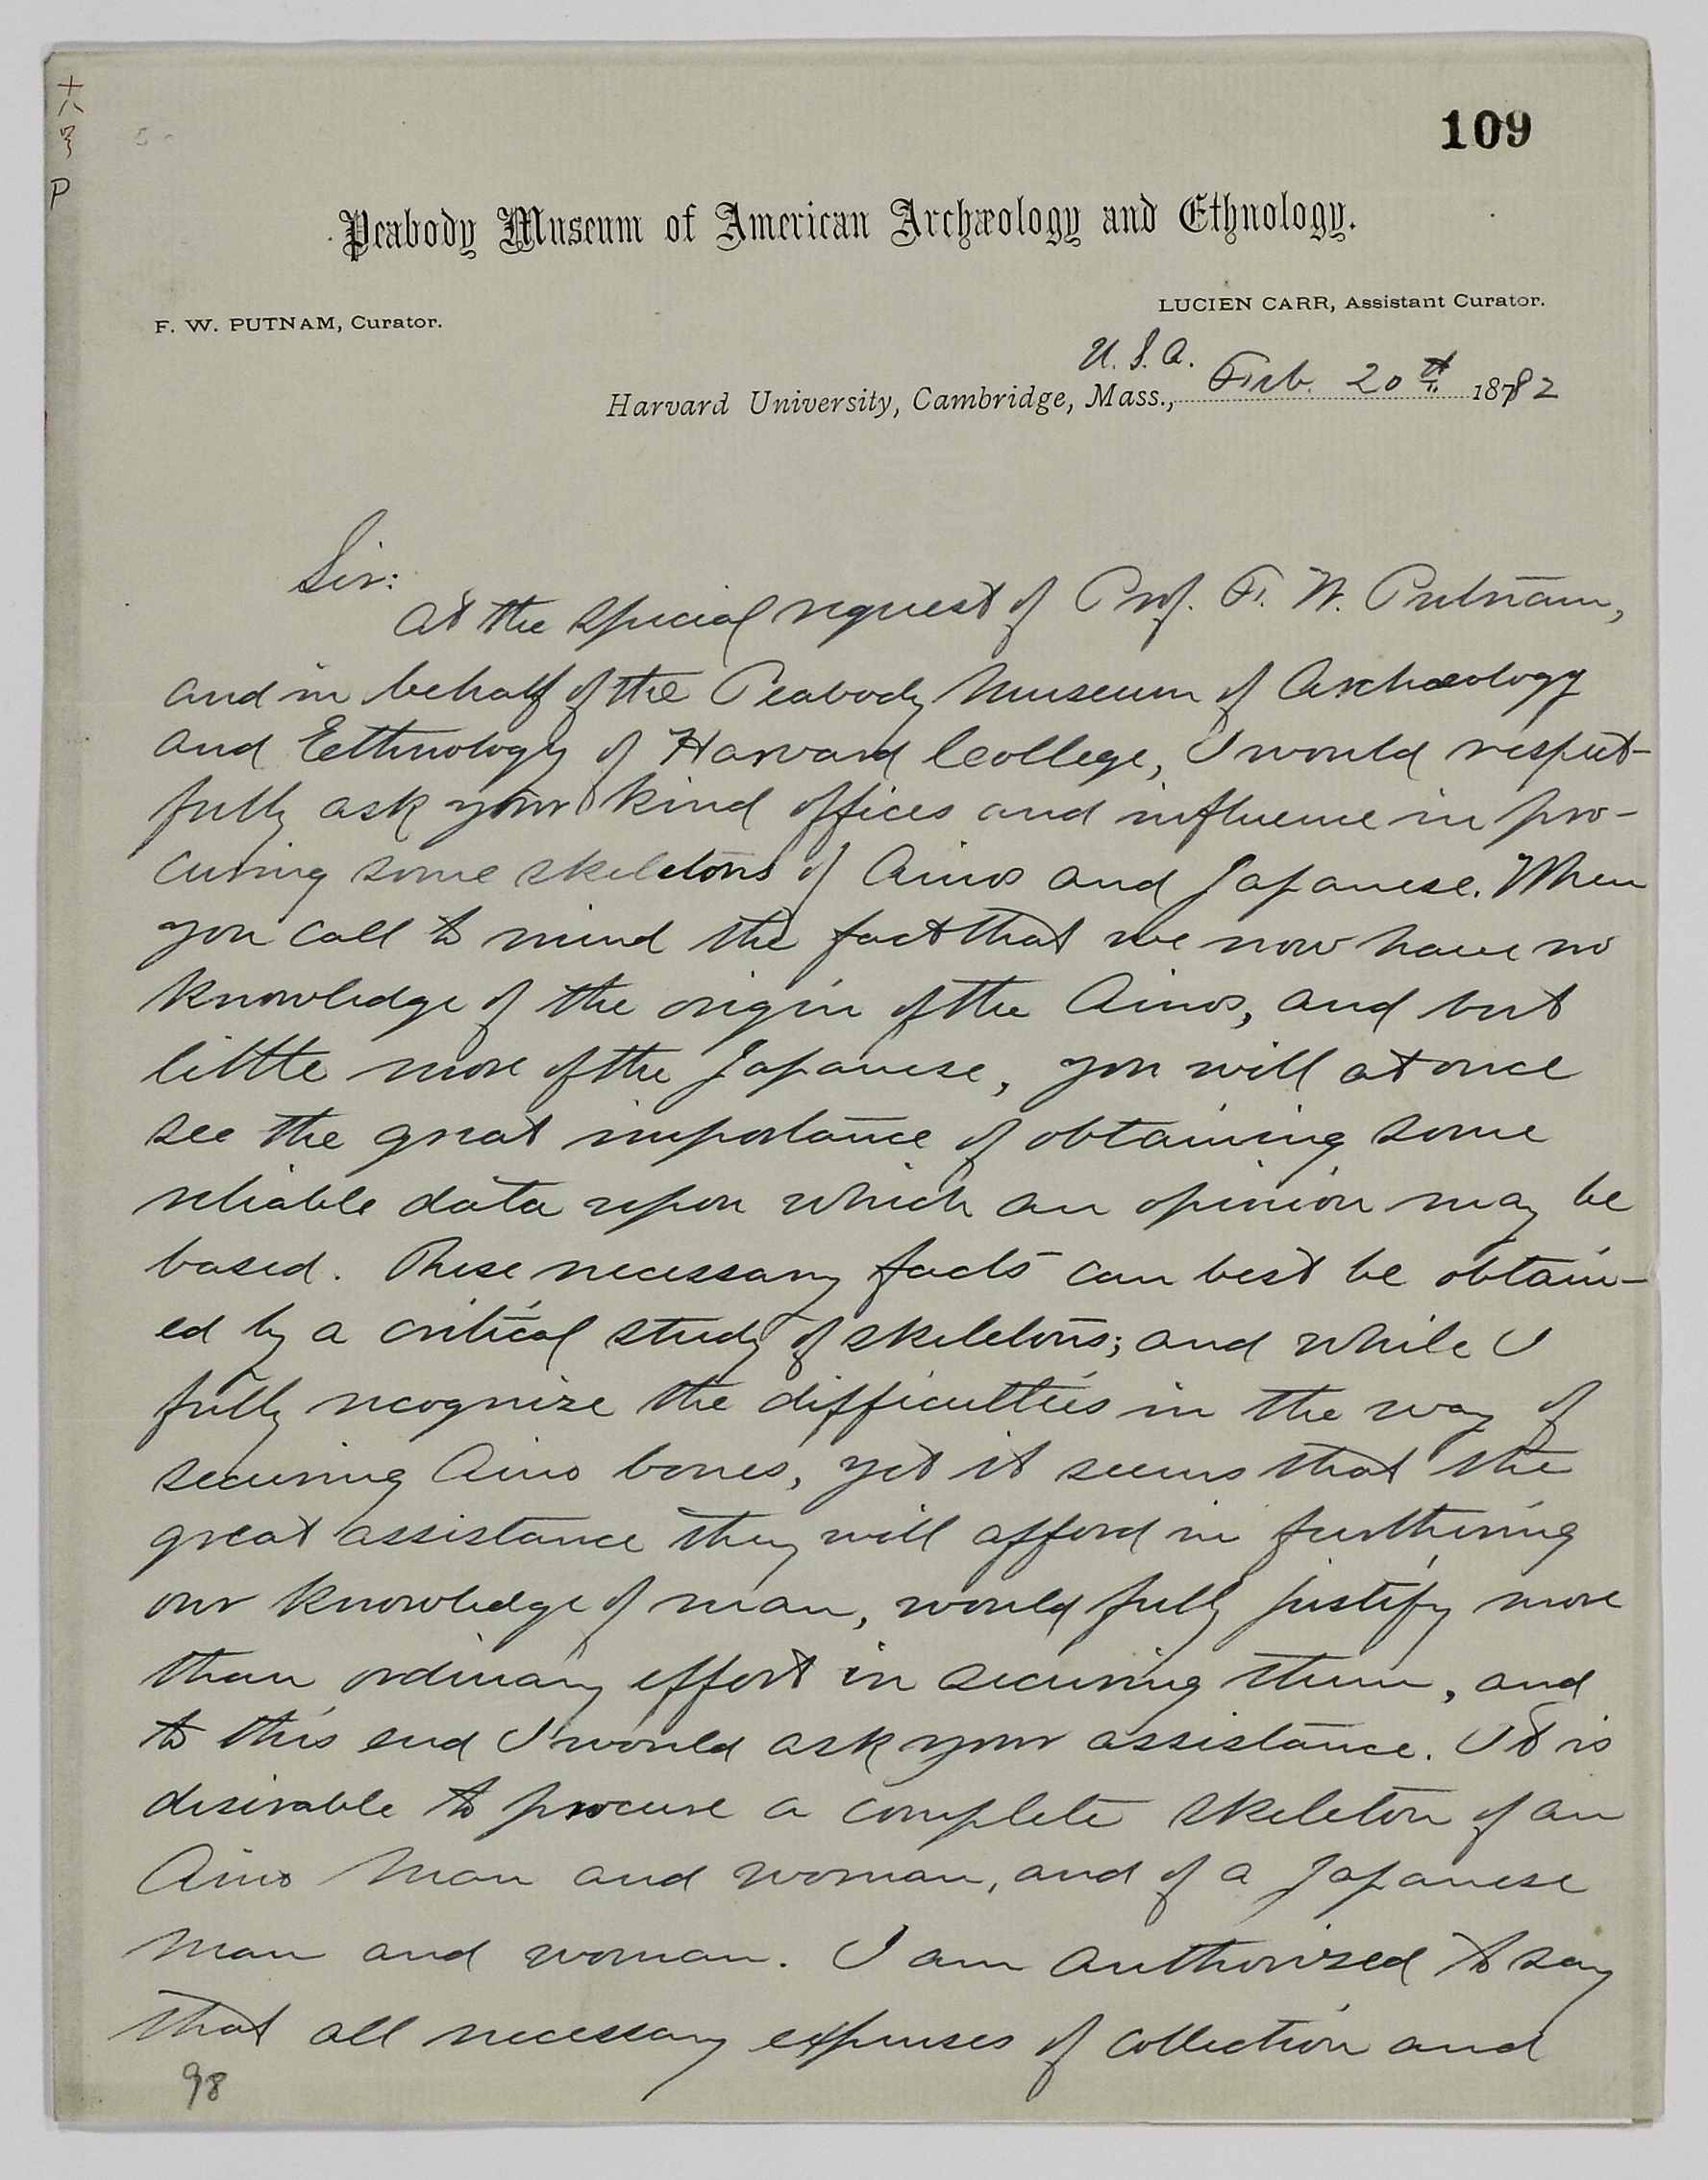 109
十八号
P
Peabody Museum of American Archæology and Ethnology.
F. W. PUTNAM, Curator.
LUCIEN CARR, Assistant Curator.
U. S. A.
Harvard University, Cambridge, Mass., Feb. 20th 1882
Sir:
At the special request of Prof. F. W. Putnam,
and in behalf of the Peabody Museum of Archæology
and Ethnology of Harvard College, I would respect-
fully ask your kind offices and influence in pro-
curing some skeletons of Ainos and Japanese. When
you call to mind the fact that we now have no
knowledge of the origin of the Ainos, and but
little more of the Japanese, you will at once
see the great importance of obtaining some
reliable data upon which an opinion may be
based. These necessary facts can best be obtain-
ed by a critical study of skeletons; and while I
fully recognize the difficulties in the way of
securing Aino bones, yet it seems that the
great assistance they will afford in furthering
our knowledge of man, would fully justify more
than ordinary effort in securing them, and
to this end I would ask your assistance. It is
desirable to procure a complete skeleton of an
Aino man and woman, and of a Japanese
man and woman. I am authorized to say
that all necessary expenses of collection and
98